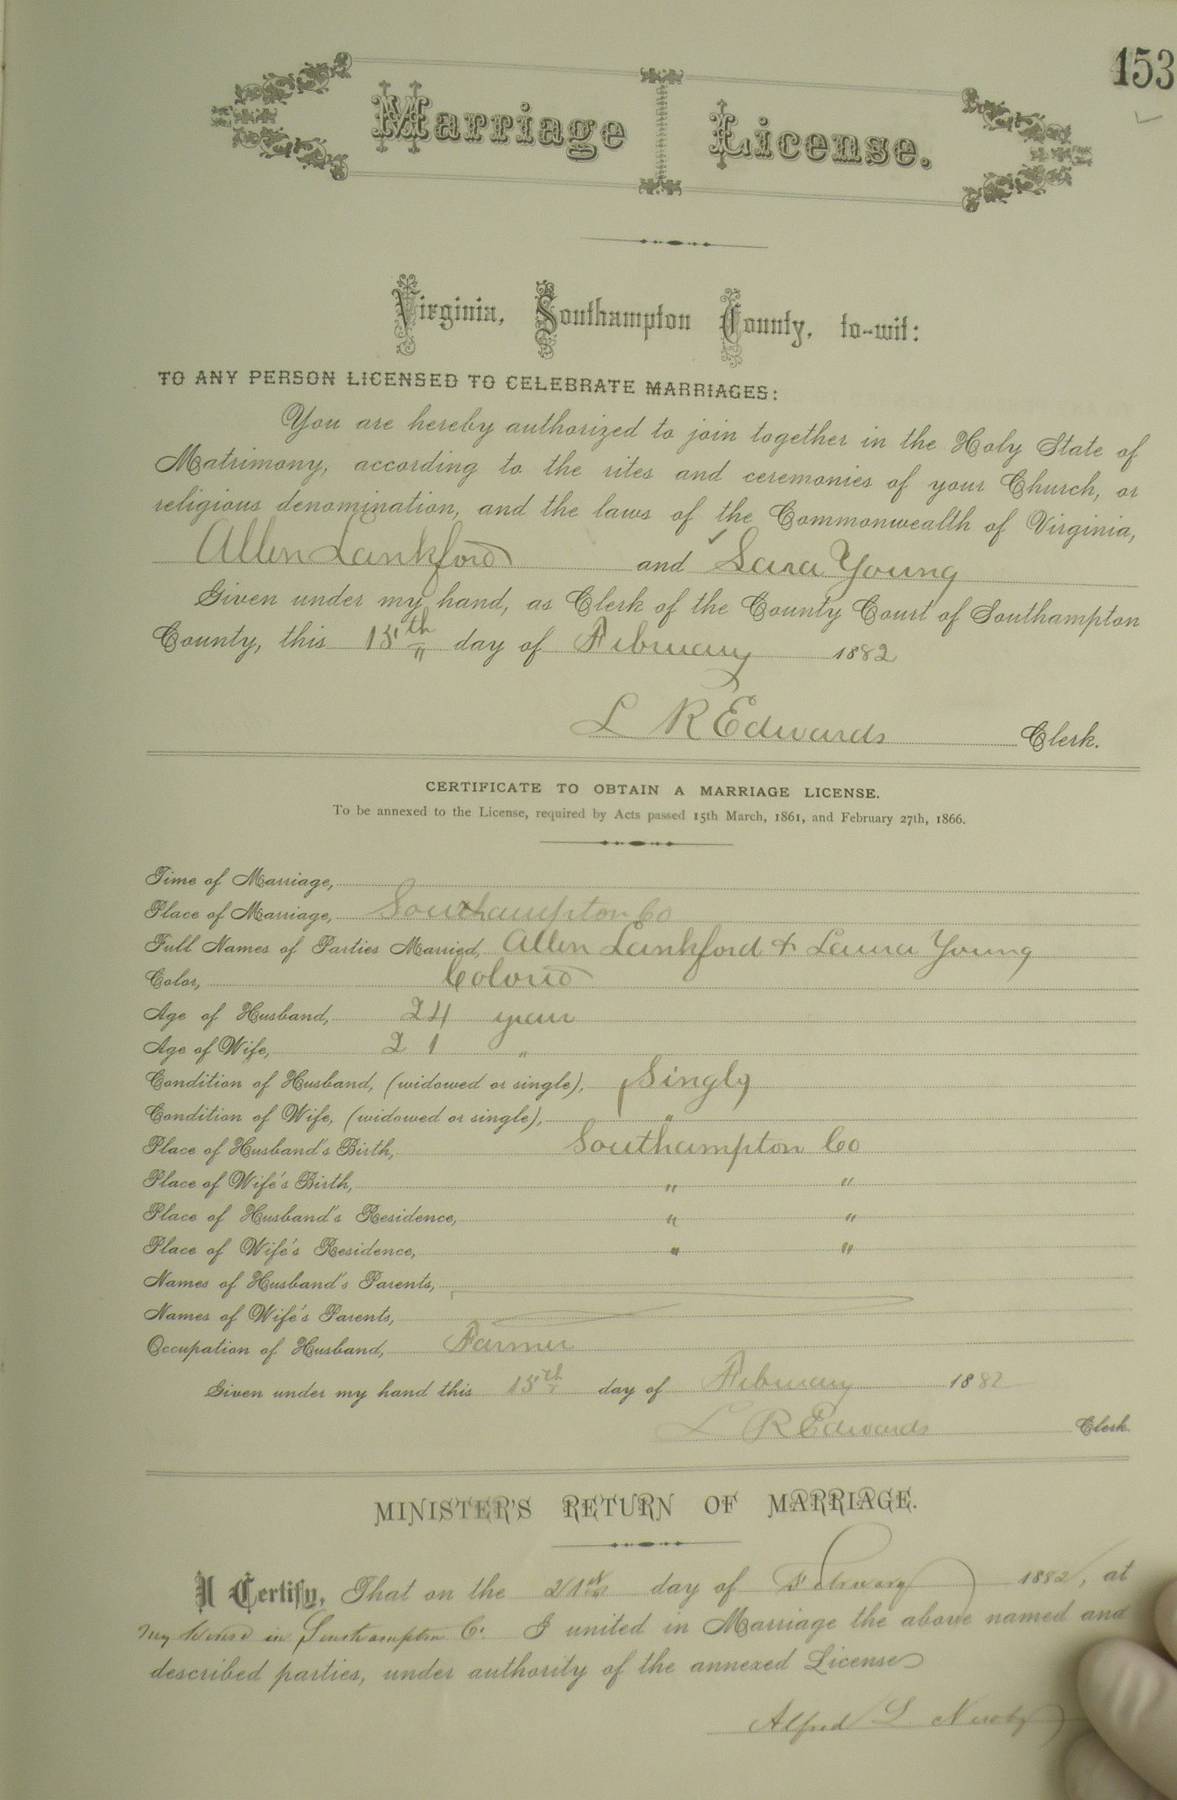 153
Marriage License.
Virginia, Southampton County, to-wit:
TO ANY PERSON LICENSED TO CELEBRATE MARRIAGES:
You are hereby authorized to join together in the Holy State of
Matrimony, according to the rites and ceremonies of your Church, or
religious denomination, and the laws of the Commonwealth of Virginia,
Allen Lankford and Laura Young
Given under my hand, as Clerk of the County Court of Southampton
County, this 15th day of February 1882
L R Edwards Clerk.
CERTIFICATE TO OBTAIN A MARRIAGE LICENSE.
To be annexed to the License, required by Acts passed 15th March, 1861, and February 27th, 1866.
Time of Marriage,
Place of Marriage, Southampton Co
Full Names of Parties Married, Allen Lankford & Laura Young
Color, Colored
Age of Husband, 24 years
Age of Wife, 21 "
Condition of Husband, (widowed or single), Single
Condition of Wife, (widowed or single), "
Place of Husband's Birth, Southampton Co
Place of Wife's Birth, " "
Place of Husband's Residence, " "
Place of Wife's Residence, " "
Names of Husband's Parents,
Names of Wife's Parents,
Occupation of Husband, Farmer
Given under my hand this 15th day of February 1882
L R Edwards Clerk.
MINISTER'S RETURN OF MARRIAGE.
I Certify, That on the 21st day of February 1882, at
my house in Southampton Co. I united in Marriage the above named and
described parties, under authority of the annexed License
Alfred L